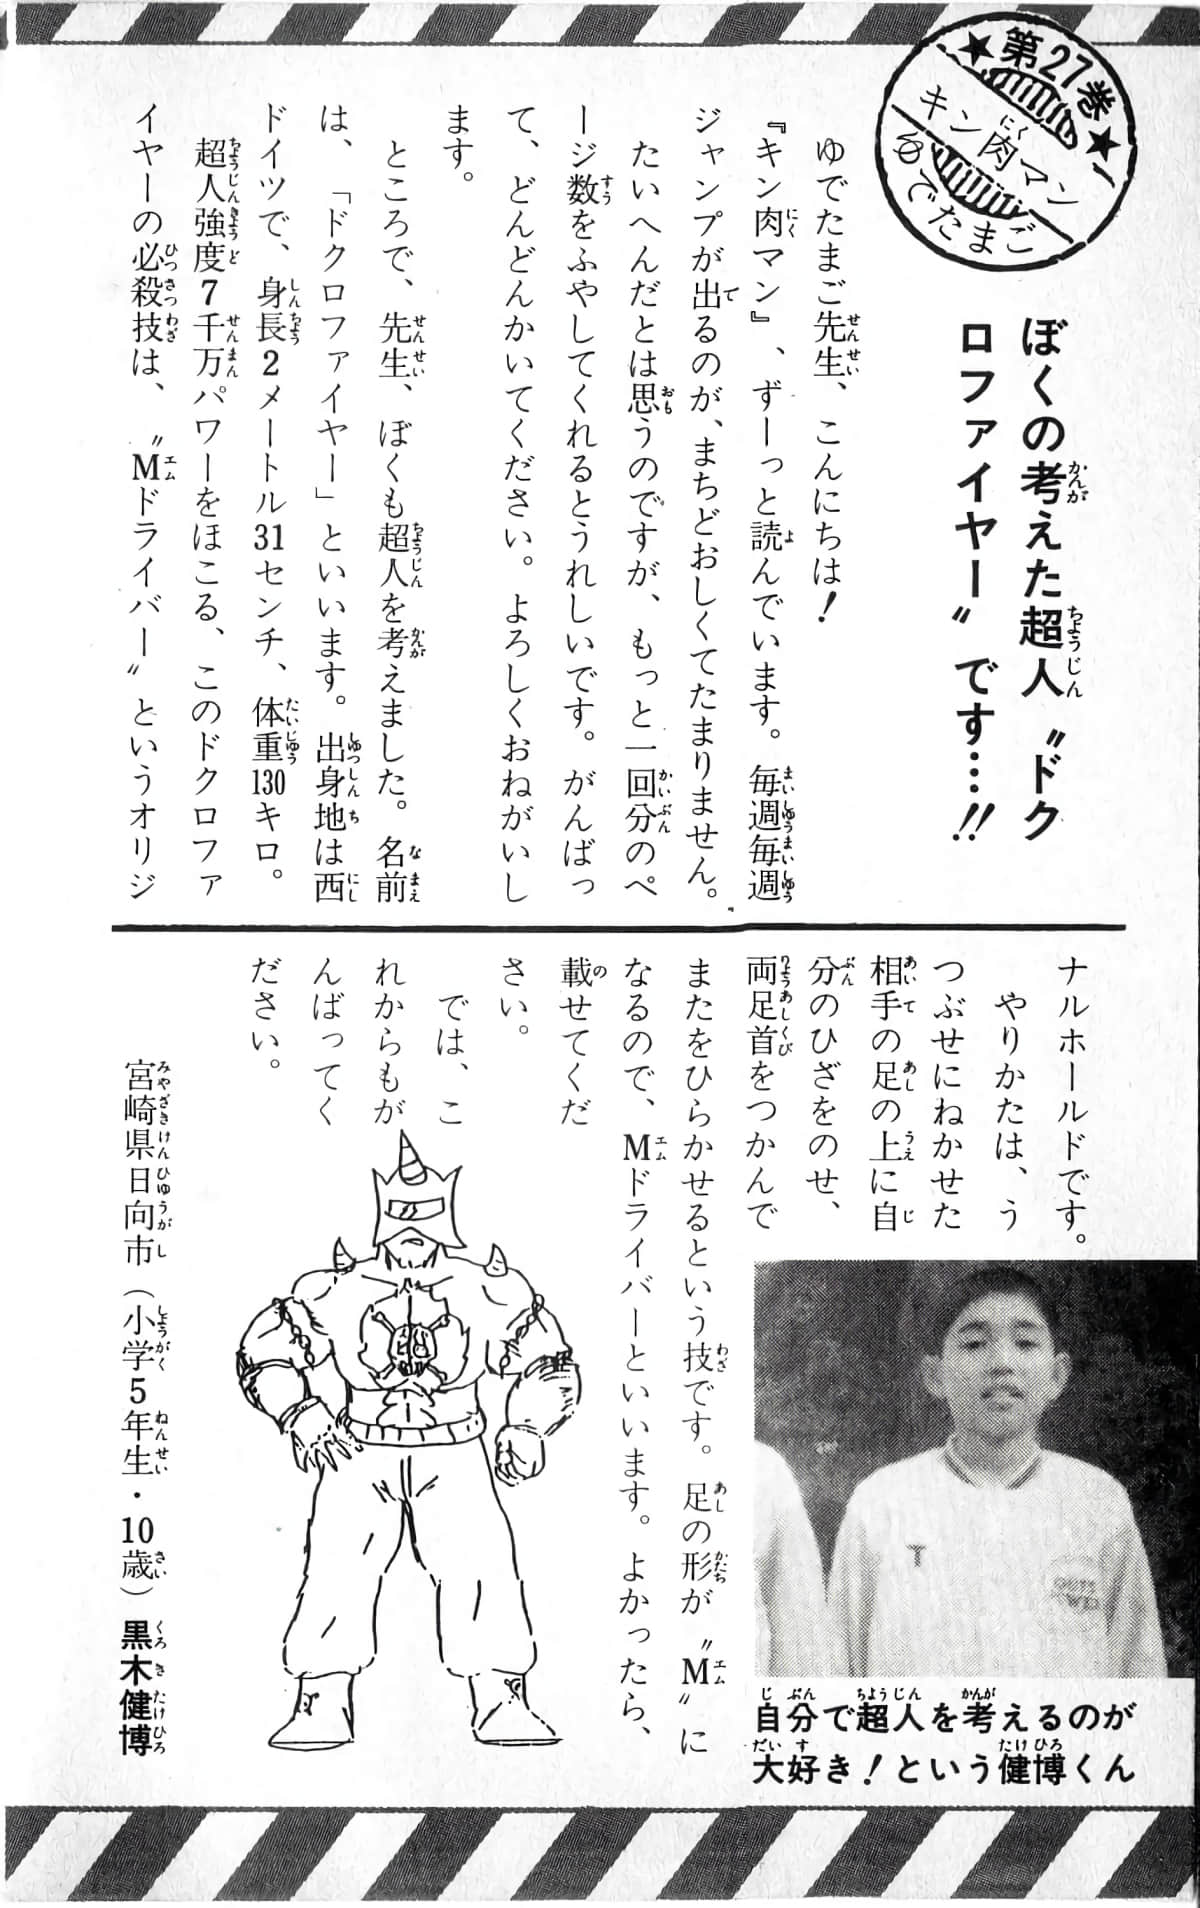 ★第27巻★
キン肉マン
にく
ゆでたまご
ぼくの考えた超人〝ドク
ロファイヤー〟です…!!
ゆでたまご先生、こんにちは!
『キン肉マン』、ずーっと読んでいます。毎週毎週
ジャンプが出るのが、まちどおしくてたまりません。
たいへんだとは思うのですが、もっと一回分のペ
ージ数をふやしてくれるとうれしいです。がんばっ
て、どんどんかいてください。よろしくおねがいし
ます。
ところで、先生、ぼくも超人を考えました。名前
は、「ドクロファイヤー」といいます。出身地は西
ドイツで、身長2メートル31センチ、体重130キロ。
超人強度7千万パワーをほこる、このドクロファ
イヤーの必殺技は、〝Mドライバー〟というオリジ
ナルホールドです。
やりかたは、う
つぶせにねかせた
相手の足の上に自
分のひざをのせ、
両足首をつかんで
またをひらかせるという技です。足の形が〝M〟に
なるので、Mドライバーといいます。よかったら、
載せてくだ
さい。
では、こ
れからもが
んばってく
ださい。
宮崎県日向市(小学5年生・10歳)黒木健博
T
自分で超人を考えるのが
大好き!という健博くん